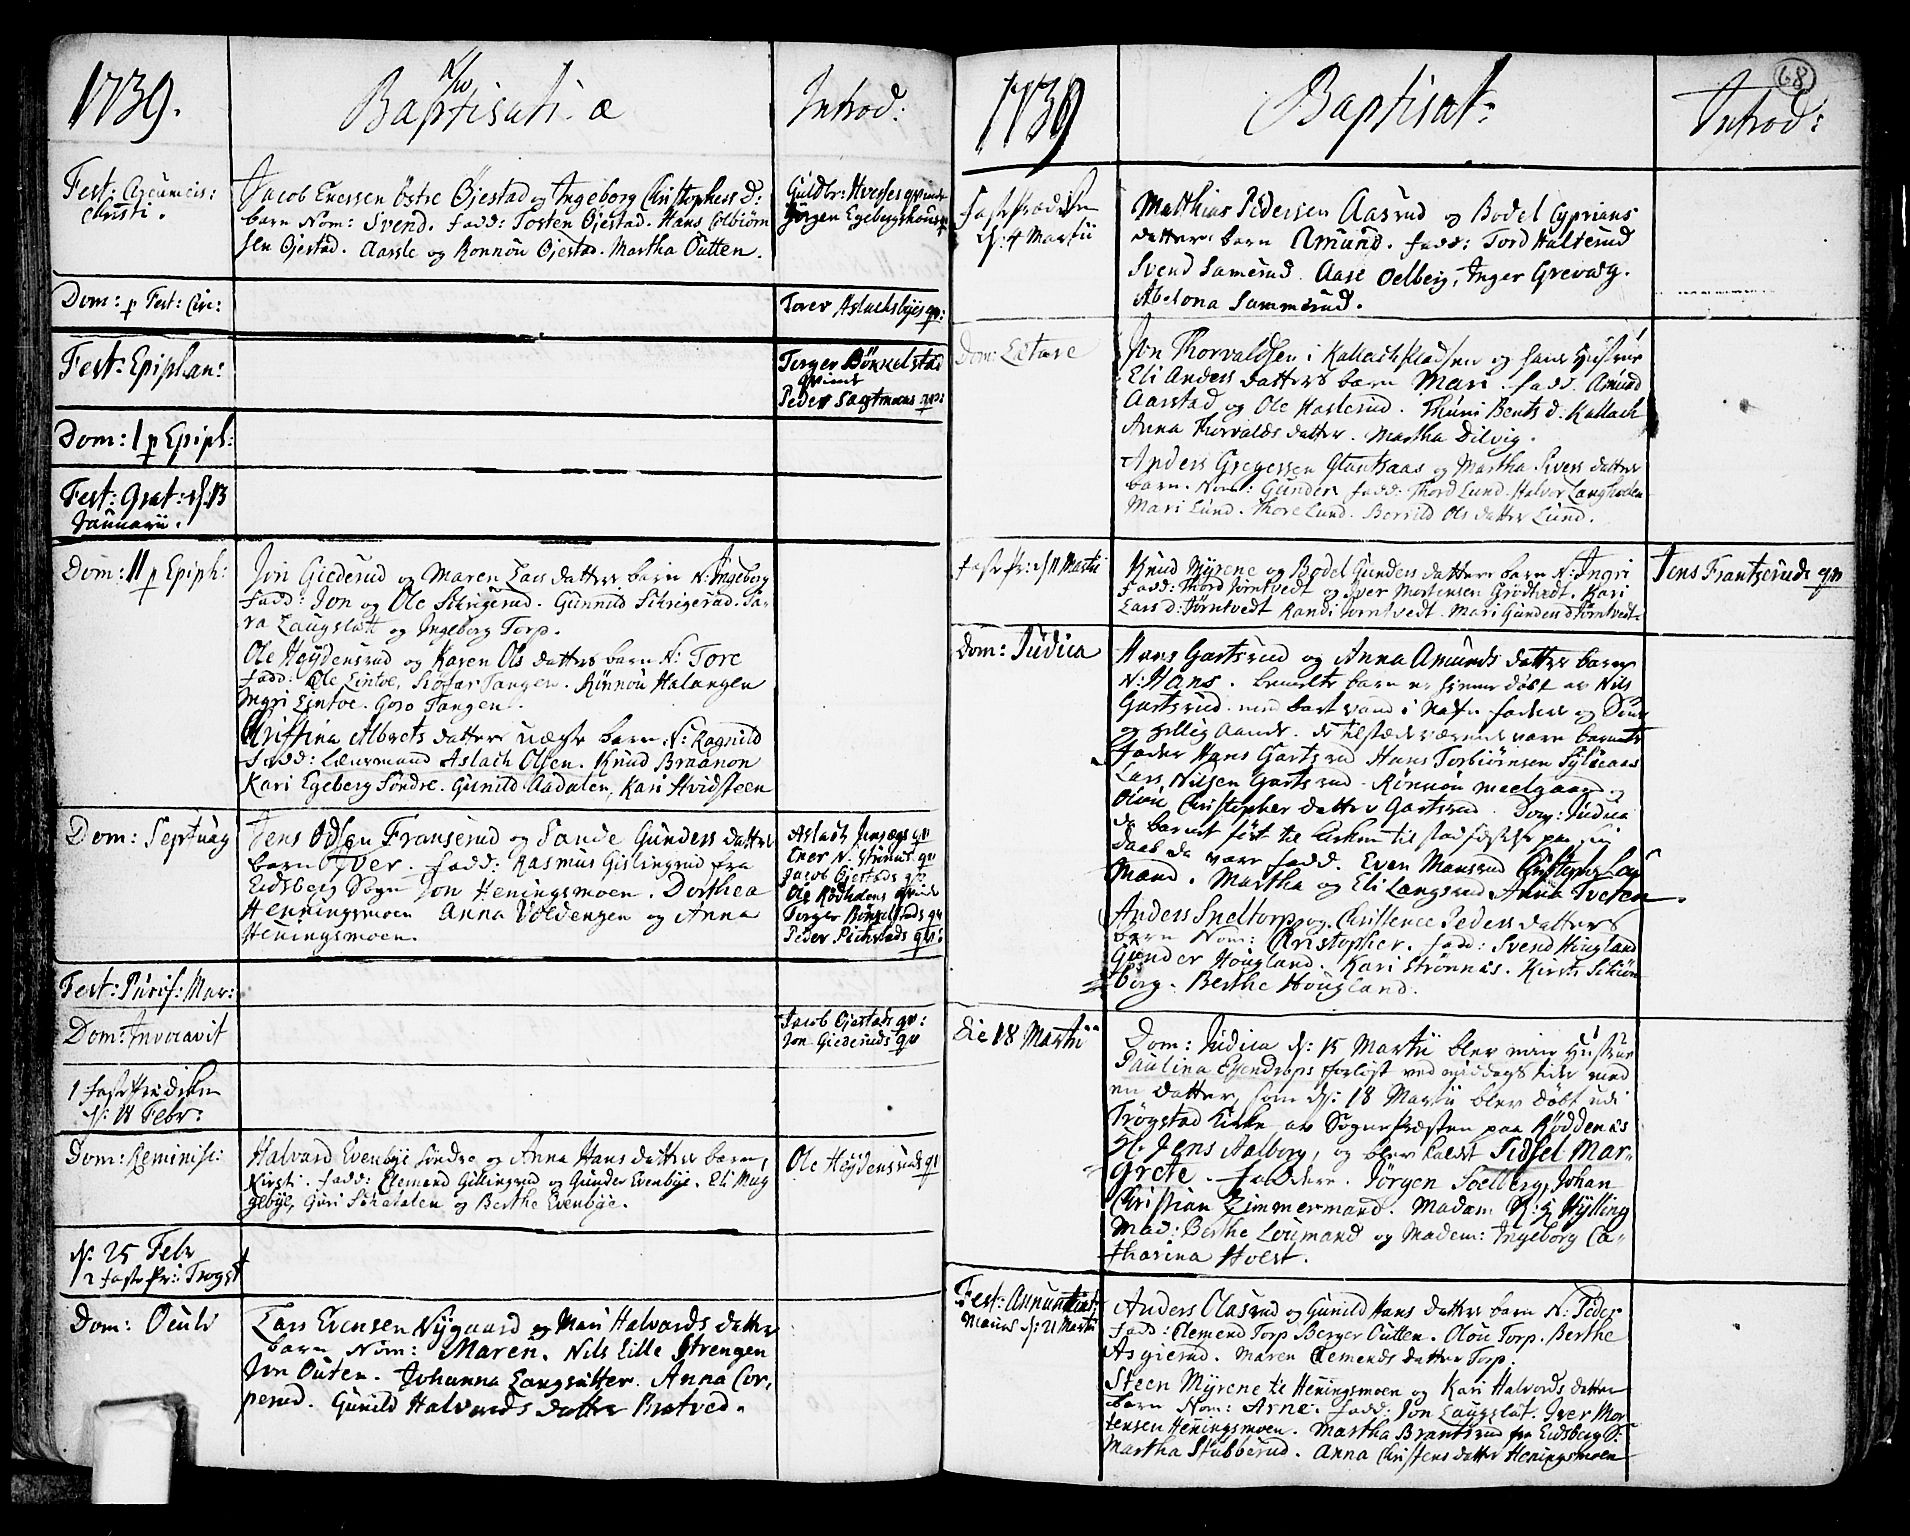 1739.
Baptisati
Introd:
Fest: Circumcis:
Christi.
Jacob Enersen Östre Öjestad og Ingeborg Christophers D:
barn Nom: Svend. Fadd: Tosten Öjestad. Hans Colbiörn
sen Öjestad. Aarsle og Ronnou Öjestad. Martha Outten.
Guldbr: Hversses qvinde
Jörgen Egebergs
Dom: p Fest: Circ:
Torer Aslachsbyes qv:
Fest: Epiphan:
Torger Bönkelstad
qvinde
Peder Sagtmoens qv:
Dom: 1 p Epiph:
Fest: Grat: d: 13
Januarii.
Dom: 11 p Epiph:
Jon Giederud og Maren Lars datters barn N: Ingeborg
Fadd: Jon og Ole Sikrigerud. Gunnild Sikrigerud. Sa-
ra Laugslatt og Ingeborg Torp.
Ole Heydensrud og Karen Ols datters barn N: Tore
Fadd: Ole Lintve, Siofar Tangen. Rönnou Halangen
Ingri Lintve. Goro Tangen.
Christina Albrets datters uægte barn N: Ragnild
Fadd: Lænsmand Aslach Olsen. Knud Braanon
Kari Egeberg Söndre. Gunild Aadalen, Kari Hvidsteen
Dom: Septuag
Jens Odsen Franserud og Sande Gunders datters
barn Iver. Fadd: Rasmus Gislingrud fra
Eidsberg Sogn Jon Heningsmoen. Dorthea
Henningsmoen Anna Voldengen og Anna
Heningsmoen.
Aslach qv
Ener N. qv
Jacob Öjestads qv
Ole Rödholens qvinde
Torger Bönkelstads qv
Peder qv:
Fest: Purif: Mar:
Dom: Invocavit
Jacob Öjestads qv:
Jon Gieserud qv
1 Faste Prædiken
d: 18 Febr:
Dom: Reminisc:
Halvard Evenbye Söndre og Anna Hans datters barn,
Kirsti. Fadd: Clemend Gillingrud og Gunder Evenbye. Eli Mug
gebye, Guri og Berthe Evenbye.
Ole Heydensruds qv
d: 25 Febr
2 Faste Pr: Trogst
Dom: Oculi
Lars Evensen Nygaard og Mari Halvards datters
barn Nom: Maren. Nils Lille Strengen
Jon Outen. Johanna Langsätter. Anna Cor,
perud. Gunild Halvords datter Bratved.
1739
Baptisat:
Introd:
68
Faste Prædiken
d: 4 Martii
Matthias Pedersen Aasrud og Bodel Cyprians
datters barn Amund. Fadd: Tord Halterud
Svend Samerud. Aase Oelberg, Inger Grevasg.
Abelona Sammerud.
Dom: Lætare
Jon Thorvaldsen i Kallachpladsen og hans Hustrue
Eli Anders datters barn Mari. Fadd. Amund
Aarstad og Ole Hasterud. Thuri Bents d. Kallach
Anna Thorvalds datter. Martha Dilvig.
Anders Gregersen og Martha Sivers datters
barn. Nom: Gunder Fadd: Thord Lund. Halvor Langholen
Mari Lund. Thore Lund. Bersild Ols datter Lund.
Faste Pr: d 11 Martii
Knud Myrene og Bodel Gunders datters barn N: Ingri
Fadd: Thord Jörntvedt og Iver Mortensen Grödtvedt. Kari
Lars d: Jörntvedt Randi Jörntvedt. Mari Gunders d Jörntvedt
Jens Frantzeruds qv
Dom: Judica
Hans Gartsrud og Anna Amunds datters barn
N: Hans. bemelte barn er hiemme döbt av Nils
Gartsrud med bart vand i Nafn Faders og Söns
og Hellig Aands. de tilstædeværende vare barnets
Fader Hans Gartsrud Hans Torbiörnsen
Lars Nilsen Gartsrud. Rönnou Meelgaard og
Olou Christopher datter Gartsrud. Dom: Judica
da barnet fört til kirken til stadfæstelse paa sin
daab da vare Fadd. Even Mansrud Christopher Lou
mand. Martha og Eli Langsrud Anna Tveten.
Anders Sneltorp og Christence Peders datters
barn Nom: Christopher. Fadd: Svend Hougland
Gunder Hougland. Kari Strönnes. Kirsti
borg. Berthe Hougland.
Die 18 Martii
Dom: Judica d: 15 Martii blev min Hustrue
Paulina Esendrops forlöst ved middags tider med
en datter, som d: 18 Martii blev döbt udi
Trögstad kirke av SognePræsten paa Röddenæs
Hr. Jens Aalborg, og blev kaldet Sidsel Mar-
grete. Faddere. Jörgen Soelberg, Johan
Christian Zimmermand. Madam Hylling
Mad: Berthe Loumand og Madem: Ingeborg Ca-
tharina Holst.
Fest: Annuntiat:
Mariæ d: 21 Martii
Anders Olasrud og Gunild Hans datters barn N: Peder
Fadd: Clemend Torp Berger Outten. Olou Torp. Berthe
Asgierud. Maren Clemends datter Torp.
Steen Myrene til Heningsmoen og Kari Halvords datters
barn Nom: Arne. Fadd: Jon Laugslat. Iver Mor
tensen Heningsmoen. Martha Brantsrud fra Eidsberg S:
Martha Stubberud. Anna Christens datter Heningsmoen